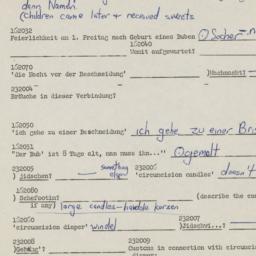 dann Namen.
Children come later & received sweets
162032
Feierlichkeit am 1. Freitag nach Geburt eines Buben ① Socher
162040
Womit aufgewartet?
162070
'die Nacht vor der Beschneidung' )Wachnacht?
232004
Bräuche in dieser Verbindung?
162050
'ich gehe zu einer Beschneidung' ich gehe zu einer
162051
"Der Bub' ist 8 Tage alt, man muss ihn..." ① gemalt
232005 something else 232006
) Jidschen? 'circumcision candles' doesn't
162080
) Schefostin? (describe the
if any) large candles - handable kerzen
162060 232007
'circumcision diaper' windel )Jidschvi...?
232008 232009
)Gehüng'? Customs in connection with